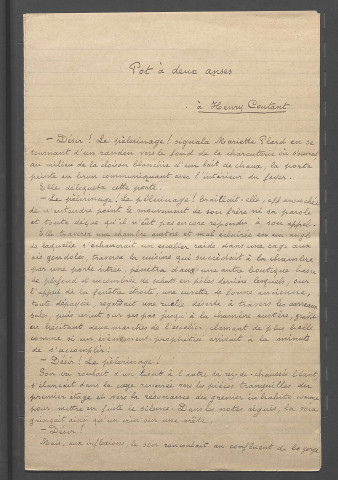 Pot à deux anses
à Henry Coutant
— Désir ! Le pèlerinage ! signala Mariette Plard en se
tournant d'un vers le fond de la charcuterie où s'ouvrait
au milieu de la cloison blanchie d'un lait de chaux, la porte
peinte en brun communiquant avec l'intérieur du foyer.
Elle déloqueta cette porte.
— Le pèlerinage, Le pèlerinage ! braillait-elle,
de n'entendre point le mouvement de son frère ni sa parole
et toute déçue qu'il n'eût pas encore répondu à son appel.
Elle traversa une chambre austère et mal éclairée en un angle
de laquelle s'échancrait un escalier raide dans une cage aux
ais gondolés, traversa la cuisine qui succédait à la chambre
par une porte vitrée, pénétra dans une autre boutique basse
de plafond et encombrée de sabots en piles derrière lesquels, sur
l'appui de la fenêtre étroite, une
toute, regardait une ruelle déserte à travers les carreaux
sales, puis revint sur ses pas jusqu'à la chambre austère, gravit
en hésitant deux marches de l'escalier, clamant de plus belle
comme si un évènement prophétisé arrivait à la minute
de s'accomplir :
— Désir ! Le pèlerinage !
Son cri roulait d'un bout à l'autre du rez-de-chaussée béant,
s'élançait dans la cage vers les pièces tranquilles du
premier étage et vers la résonnance du grenier inhabité comme
pour mettre en fuite le silence. Dans les notes aiguës, la voix
grinçait ainsi qu'un sur une.
— Désir !
Mais, aux inflexions, le son rencontrait au confluent de la gorge